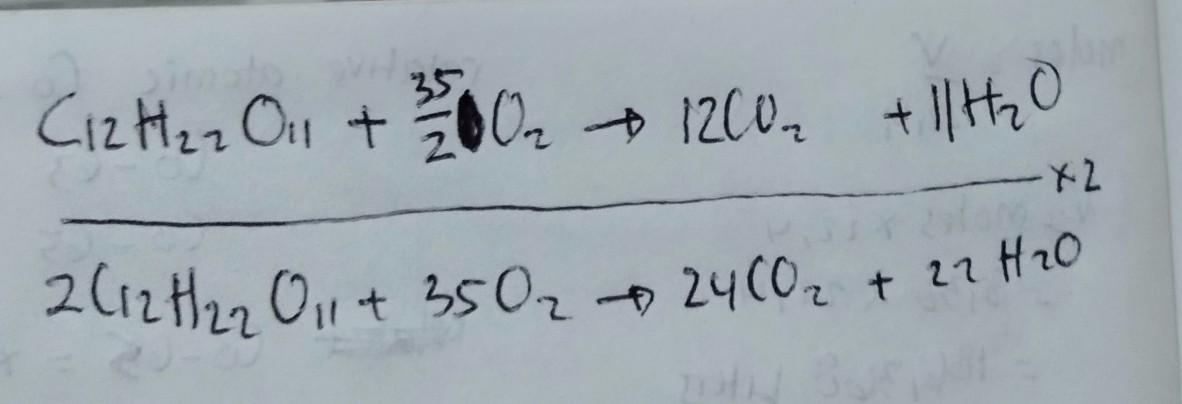 C₁₂H₂₂O₁₁ + 35/2 O₂ → 12CO₂ + 11H₂O
×2
2C₁₂H₂₂O₁₁ + 35O₂ → 24CO₂ + 22H₂O